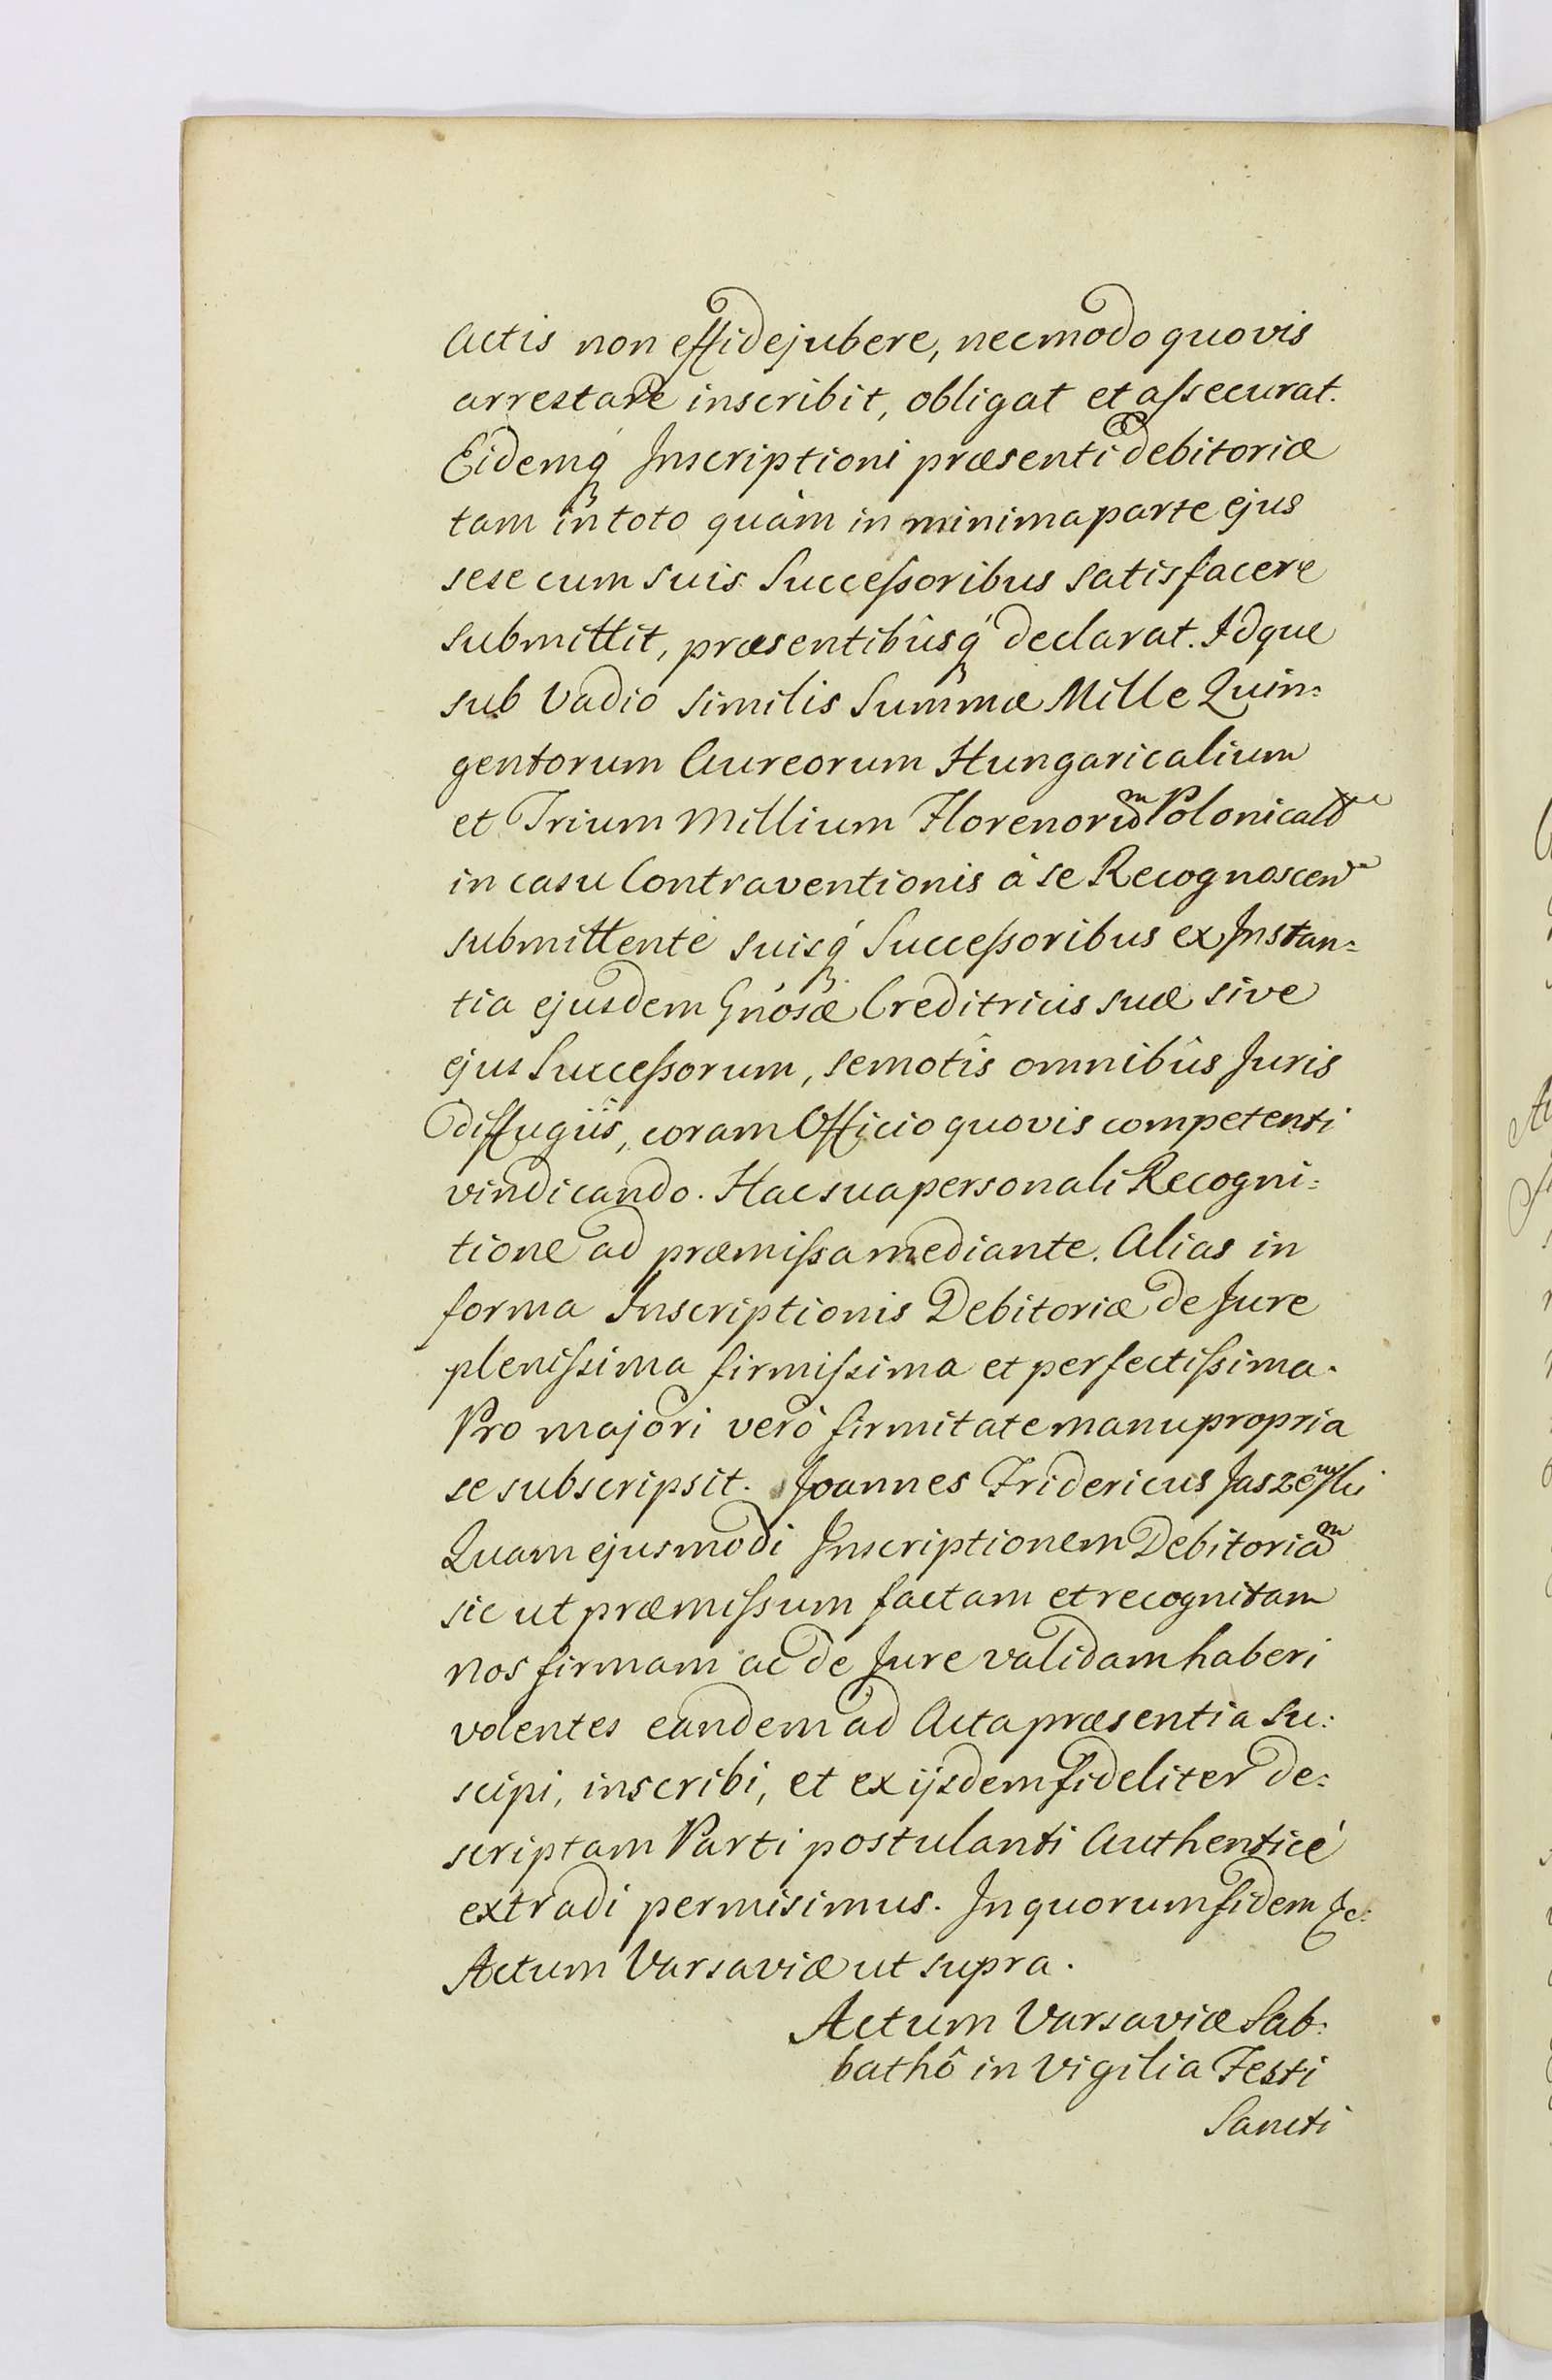 Actis non effidejubere, nec modo quovis
arrestare inscribit, obligat et assecurat.
Eidemq́ Inscriptioni præsenti debitoriæ
tam in toto quàm in minima parte ejus
sese cum suis Successoribus satisfacere
submittit, præsentibûsq́ declarat. Idque
sub Vadio similis Summæ Mille Quin=
gentorum Aureorum Hungaricalium
et Trium Millium Florenorum Polonical
in casu Contraventionis à se Recognoscen
submittente suisq́ Successoribus ex Instan=
tia ejusdem Gnosæ Creditricis suæ sive
ejus Successorum, semotîs omnibûs Juris
diffugiîs, coram Officio quovis competenti
vindicando. Hac sua personali Recogni=
tione ad præmissa mediante. Alias in
forma Inscriptionis Debitoriæ de Jure
plenissima firmissima et perfectissima.
Pro majori verò firmitate manu propria
se subscripsit. Joannes Fridericus Jaszewski
Quam ejusmodi Inscriptionem Debitoriam
sic ut præmissum factam et recognitam
nos firmam ac de Jure validam haberi
volentes eandem ad Acta præsentia su=
scipi, inscribi, et ex ijsdem fideliter de=
scriptam Parti postulanti Authenticé
extradi permisimus. In quorum fidem &c:
Actum Varsaviæ ut supra.
Actum Varsaviæ Sab=
bathô in Vigilia Festi
Sancti